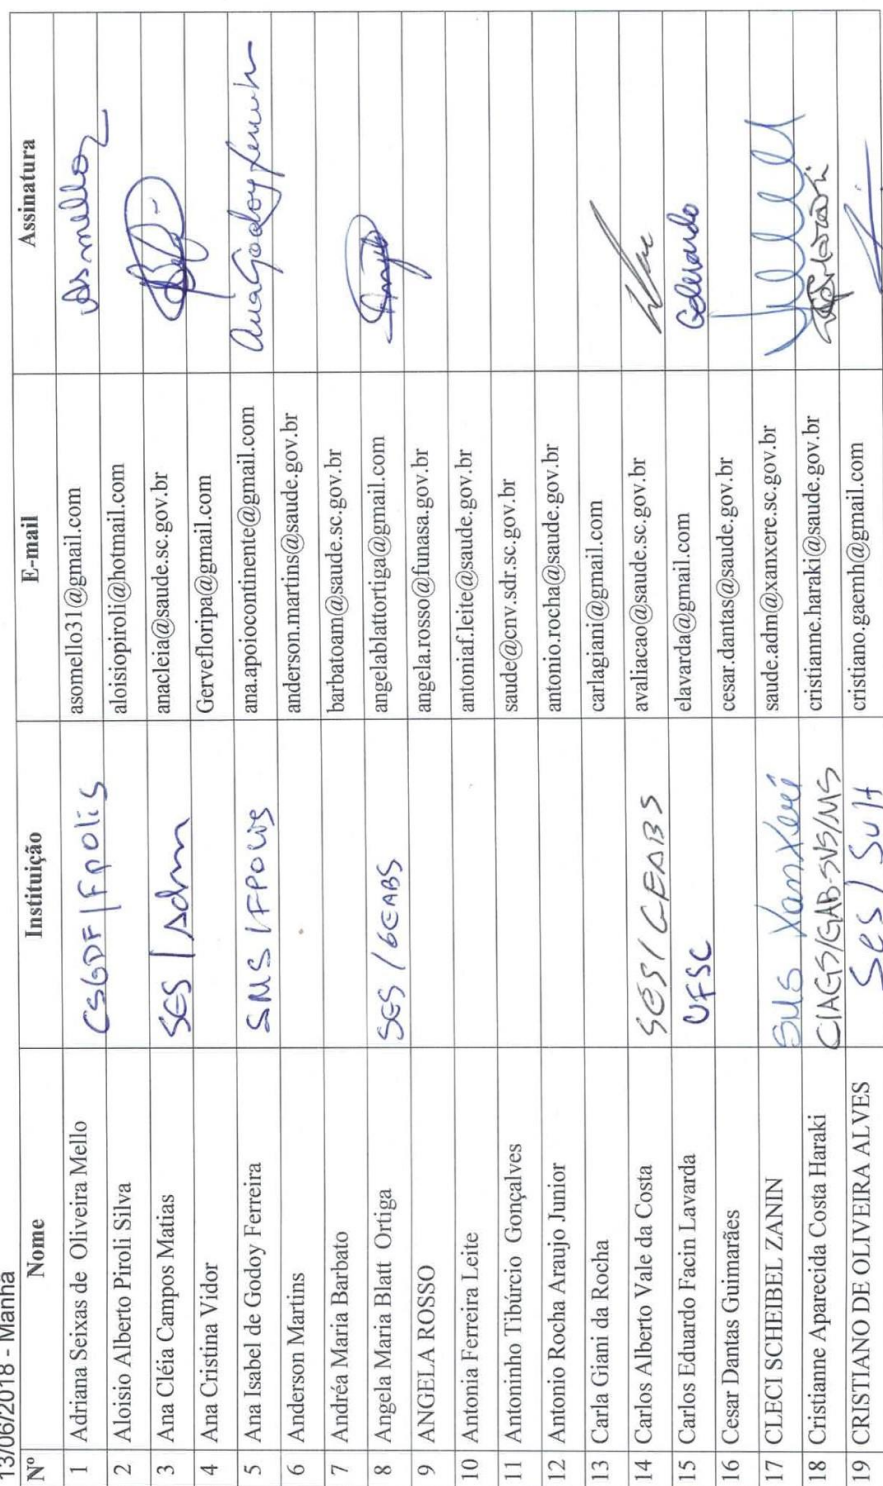 13/06/2018 - Manhã
Nº Nome Instituição E-mail Assinatura
1 Adriana Seixas de Oliveira Mello CSGDF/Fpolis asomello31@gmail.com Asmello
2 Aloisio Alberto Piroli Silva aloisiopiroli@hotmail.com
3 Ana Cléia Campos Matias SES/Adm anacleia@saude.sc.gov.br
4 Ana Cristina Vidor Gervefloripa@gmail.com
5 Ana Isabel de Godoy Ferreira SMS/FPOLIS ana.apoiocontinente@gmail.com Ana Godoy Ferreira
6 Anderson Martins anderson.martins@saude.gov.br
7 Andréa Maria Barbato barbatoam@saude.sc.gov.br
8 Angela Maria Blatt Ortiga SES/GEABS angelablattortiga@gmail.com
9 ANGELA ROSSO angela.rosso@funasa.gov.br
10 Antonia Ferreira Leite antoniaf.leite@saude.gov.br
11 Antoninho Tibúrcio Gonçalves saude@cnv.sdr.sc.gov.br
12 Antonio Rocha Araujo Junior antonio.rocha@saude.gov.br
13 Carla Giani da Rocha carlagiani@gmail.com
14 Carlos Alberto Vale da Costa SES/GEABS avaliacao@saude.sc.gov.br
15 Carlos Eduardo Facin Lavarda UFSC elavarda@gmail.com
16 Cesar Dantas Guimarães cesar.dantas@saude.gov.br
17 CLECI SCHEIBEL ZANIN SUS Xanxerê saude.adm@xanxere.sc.gov.br
18 Cristianne Aparecida Costa Haraki CIAGS/GAB-SVS/MS cristianne.haraki@saude.gov.br
19 CRISTIANO DE OLIVEIRA ALVES SES/SUH cristiano.gaemh@gmail.com